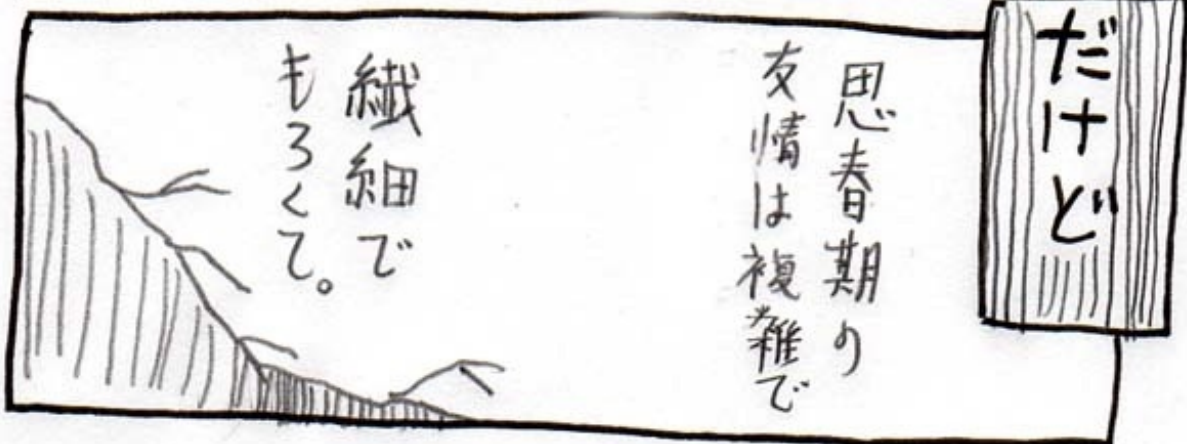 だけど
思春期の
友情は複雑で
繊細で
もろくて。